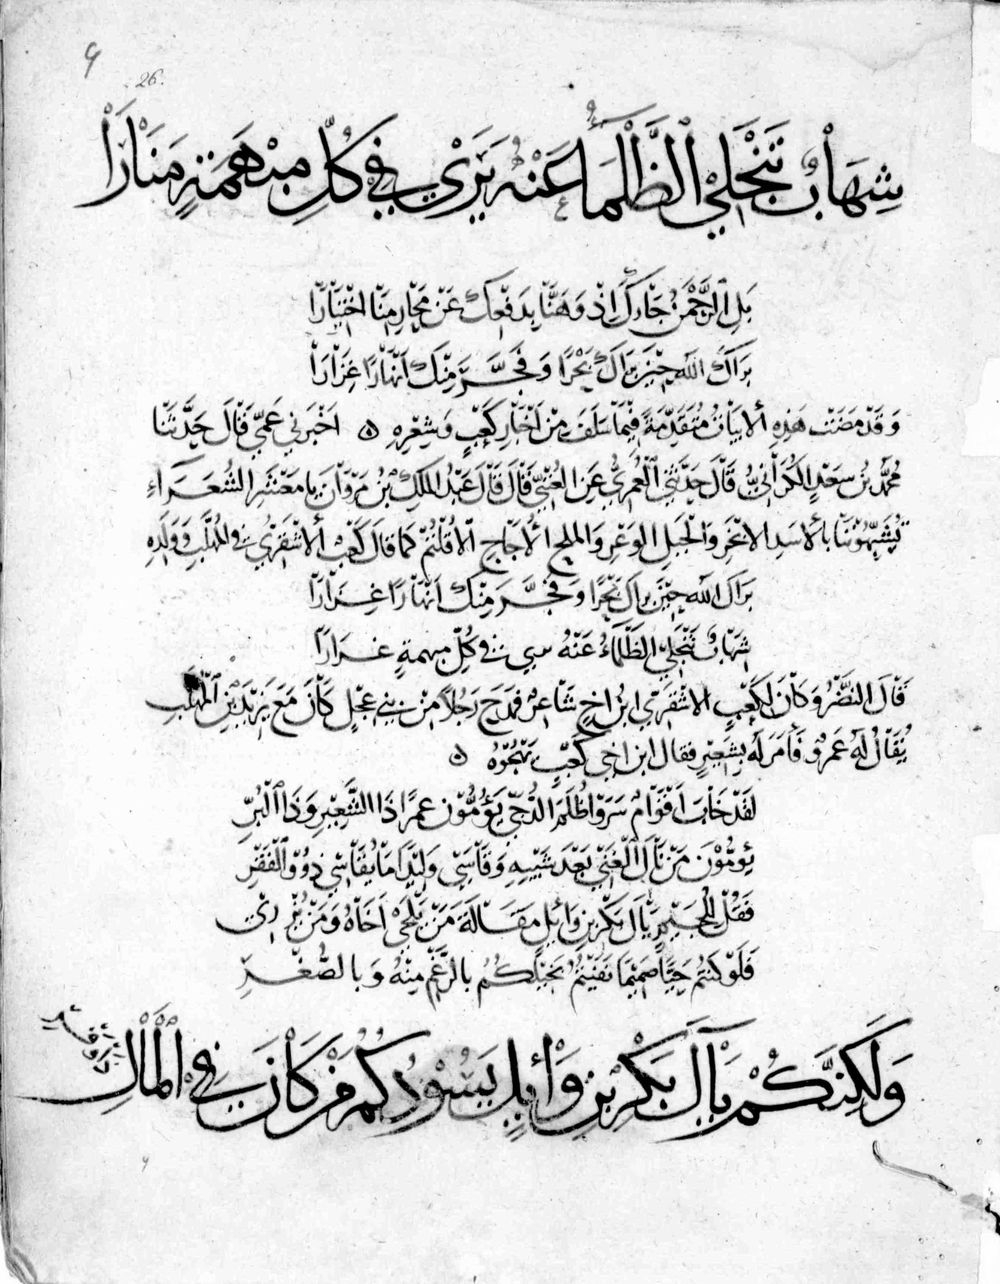 9
26.
شِهَابٌ تَنْجَلِي الظَّلْمَاءُ عَنْهُ يَرَىْ فِي كُلِّ مُبْهَمَةٍ مَنَارَا
بَلِ الرَّحْمَنُ جَارَكَ إِذْ وَهَنَّا بِدَفْعِكَ عَنْ مَحَارِمِنَا اخْتِيَارَا
بَرَاكَ اللهُ حِيْنَ بَرَاكَ بَحْرًا وَفَجَّرَ مِنْكَ أَنْهَارًا غِزَارَا
وَقَدْ مَضَتْ هَذِهِ الأَبْيَاتُ مُتَقَدِّمَةً فِيْمَا سَلَفَ مِنْ أَخْبَارِ كَعْبٍ وَشِعْرِهِ ۵ أَخْبَرَنِي عَمِّي قَالَ حَدَّثَنَا
مُحَمَّدُ بْنُ سَعْدٍ الكُرَانِيُّ قَالَ حَدَّثَنِي الْعُمَرِيُّ عَنِ العُتْبِيِّ قَالَ قَالَ عَبْدُ المَلِكِ بْنُ مَرْوَانَ يَا مَعْشَرَ الشُّعَرَاءِ
تُشَبِّهُوْنَنَا بِالأَسَدِ الأَبْخَرِ وَالْجَبَلِ الوَعْرِ وَالمِلْحِ الأُجَاجِ أَلَا قُلْتُمْ كَمَا قَالَ كَعْبٌ الأَشْقَرِيُّ فِي المُهَلَّبِ وَوَلَدِهِ
بَرَاكَ اللهُ حِيْنَ بَرَاكَ بَحْرًا وَفَجَّرَ مِنْكَ أَنْهَارًا غِزَارَا
شِهَابٌ تَنْجَلِي الظَّلْمَاءُ عَنْهُ يرى فِي كُلِّ مبهمةٍ غرارا
قَالَ النَّضْرُ وَكَانَ لِكَعْبٍ الأَشْقَرِيِّ ابْنُ أَخٍ شَاعِرٌ فَمَدَحَ رَجُلًا مِنْ بَنِي عِجْلٍ كَانَ مَعَ يَزِيْدَ بْنِ الْمُهَلَّبِ
يُقَالُ لَهُ عَمْرٌو فَأَمَرَ لَهُ بِشَعِيْرٍ فقال ابن أخي كَعْبٍ يَهْجُوْهُ ۵
لَقَدْ خَابَ أَقْوَامٌ سَرَوْا ظُلَمَ الدُّجَى يَؤُمُّوْنَ عَمْرًا ذَا الشَّعِيْرِ وَذَا الْبُرِّ
يَؤُمُّوْنَ مَنْ نَالَ الْغِنَى بَعْدَ شَيْبِهِ وَقَاسَى وَلِيْدًا مَا يُقَاسِي ذَوُو الْفَقْرِ
فَقُلْ لِلُّجَيْمِ يَالَ بَكْرِ بْنِ وَائِلٍ مَقَالَةَ مَنْ يَلْحَى أَخَاهُ وَمَنْ يُزْرِي
فَلَوْ كُنْتُمُ حَيًّا صَمِيْمًا نَفَيْتُمُ بَخِيْلَكُمُ بِالرَّغْمِ مِنْهُ وَبِالصُّغْرِ
وَلَكِنَّكُمْ يَا آلَ بَكْرِ بْنِ وَائِلٍ يَسُوْدُكُمُ مَنْ كَانَ فِي الْمَالِ ذَا وَفْرِ